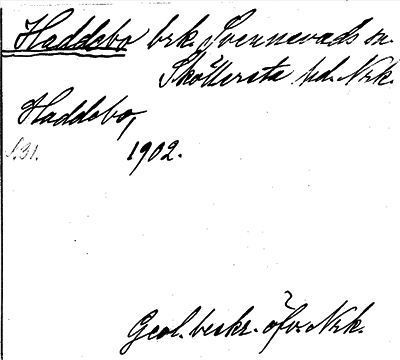 Haddebo brk. Svennevads sn.
Sköllersta hd. Nrk.
Haddebo,
s.31. 1902.
Geol. beskr. öfv. Nrk.